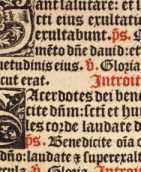 ant salutare: et i
cti eius exultatio
exultabunt. ps. Me
mēto dñe dauid: et
uetudinis eius. ℣. Gloria
cut erat. Introit
Acerdotes dei bene
cite dñm: scti et hum
les corde laudate d
ps. Benedicite oīa o
dño: laudate ⁊ superexalt
℣. Gloria. Introit